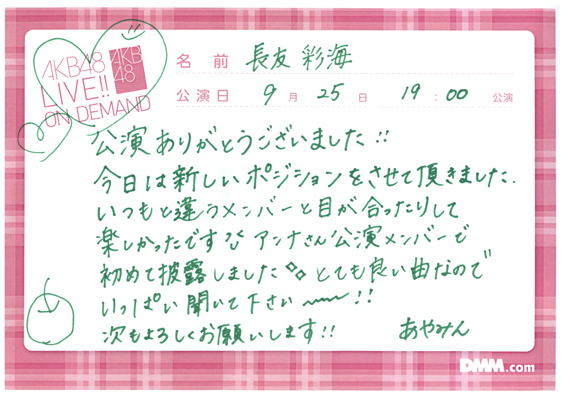 AKB48
LIVE!!
ON DEMAND
AKB
48
名前 長友 彩海
公演日 9月25日 19:00 公演
公演ありがとうございました!!
今日は新しいポジションをさせて頂きました.
いつもと違うメンバーと目が合ったりして
楽しかったです アンナさん公演メンバーで
初めて披露しました とても良い曲なので
いっぱい聞いて下さい〜!!
次もよろしくお願いします!! あやみん
DMM.com